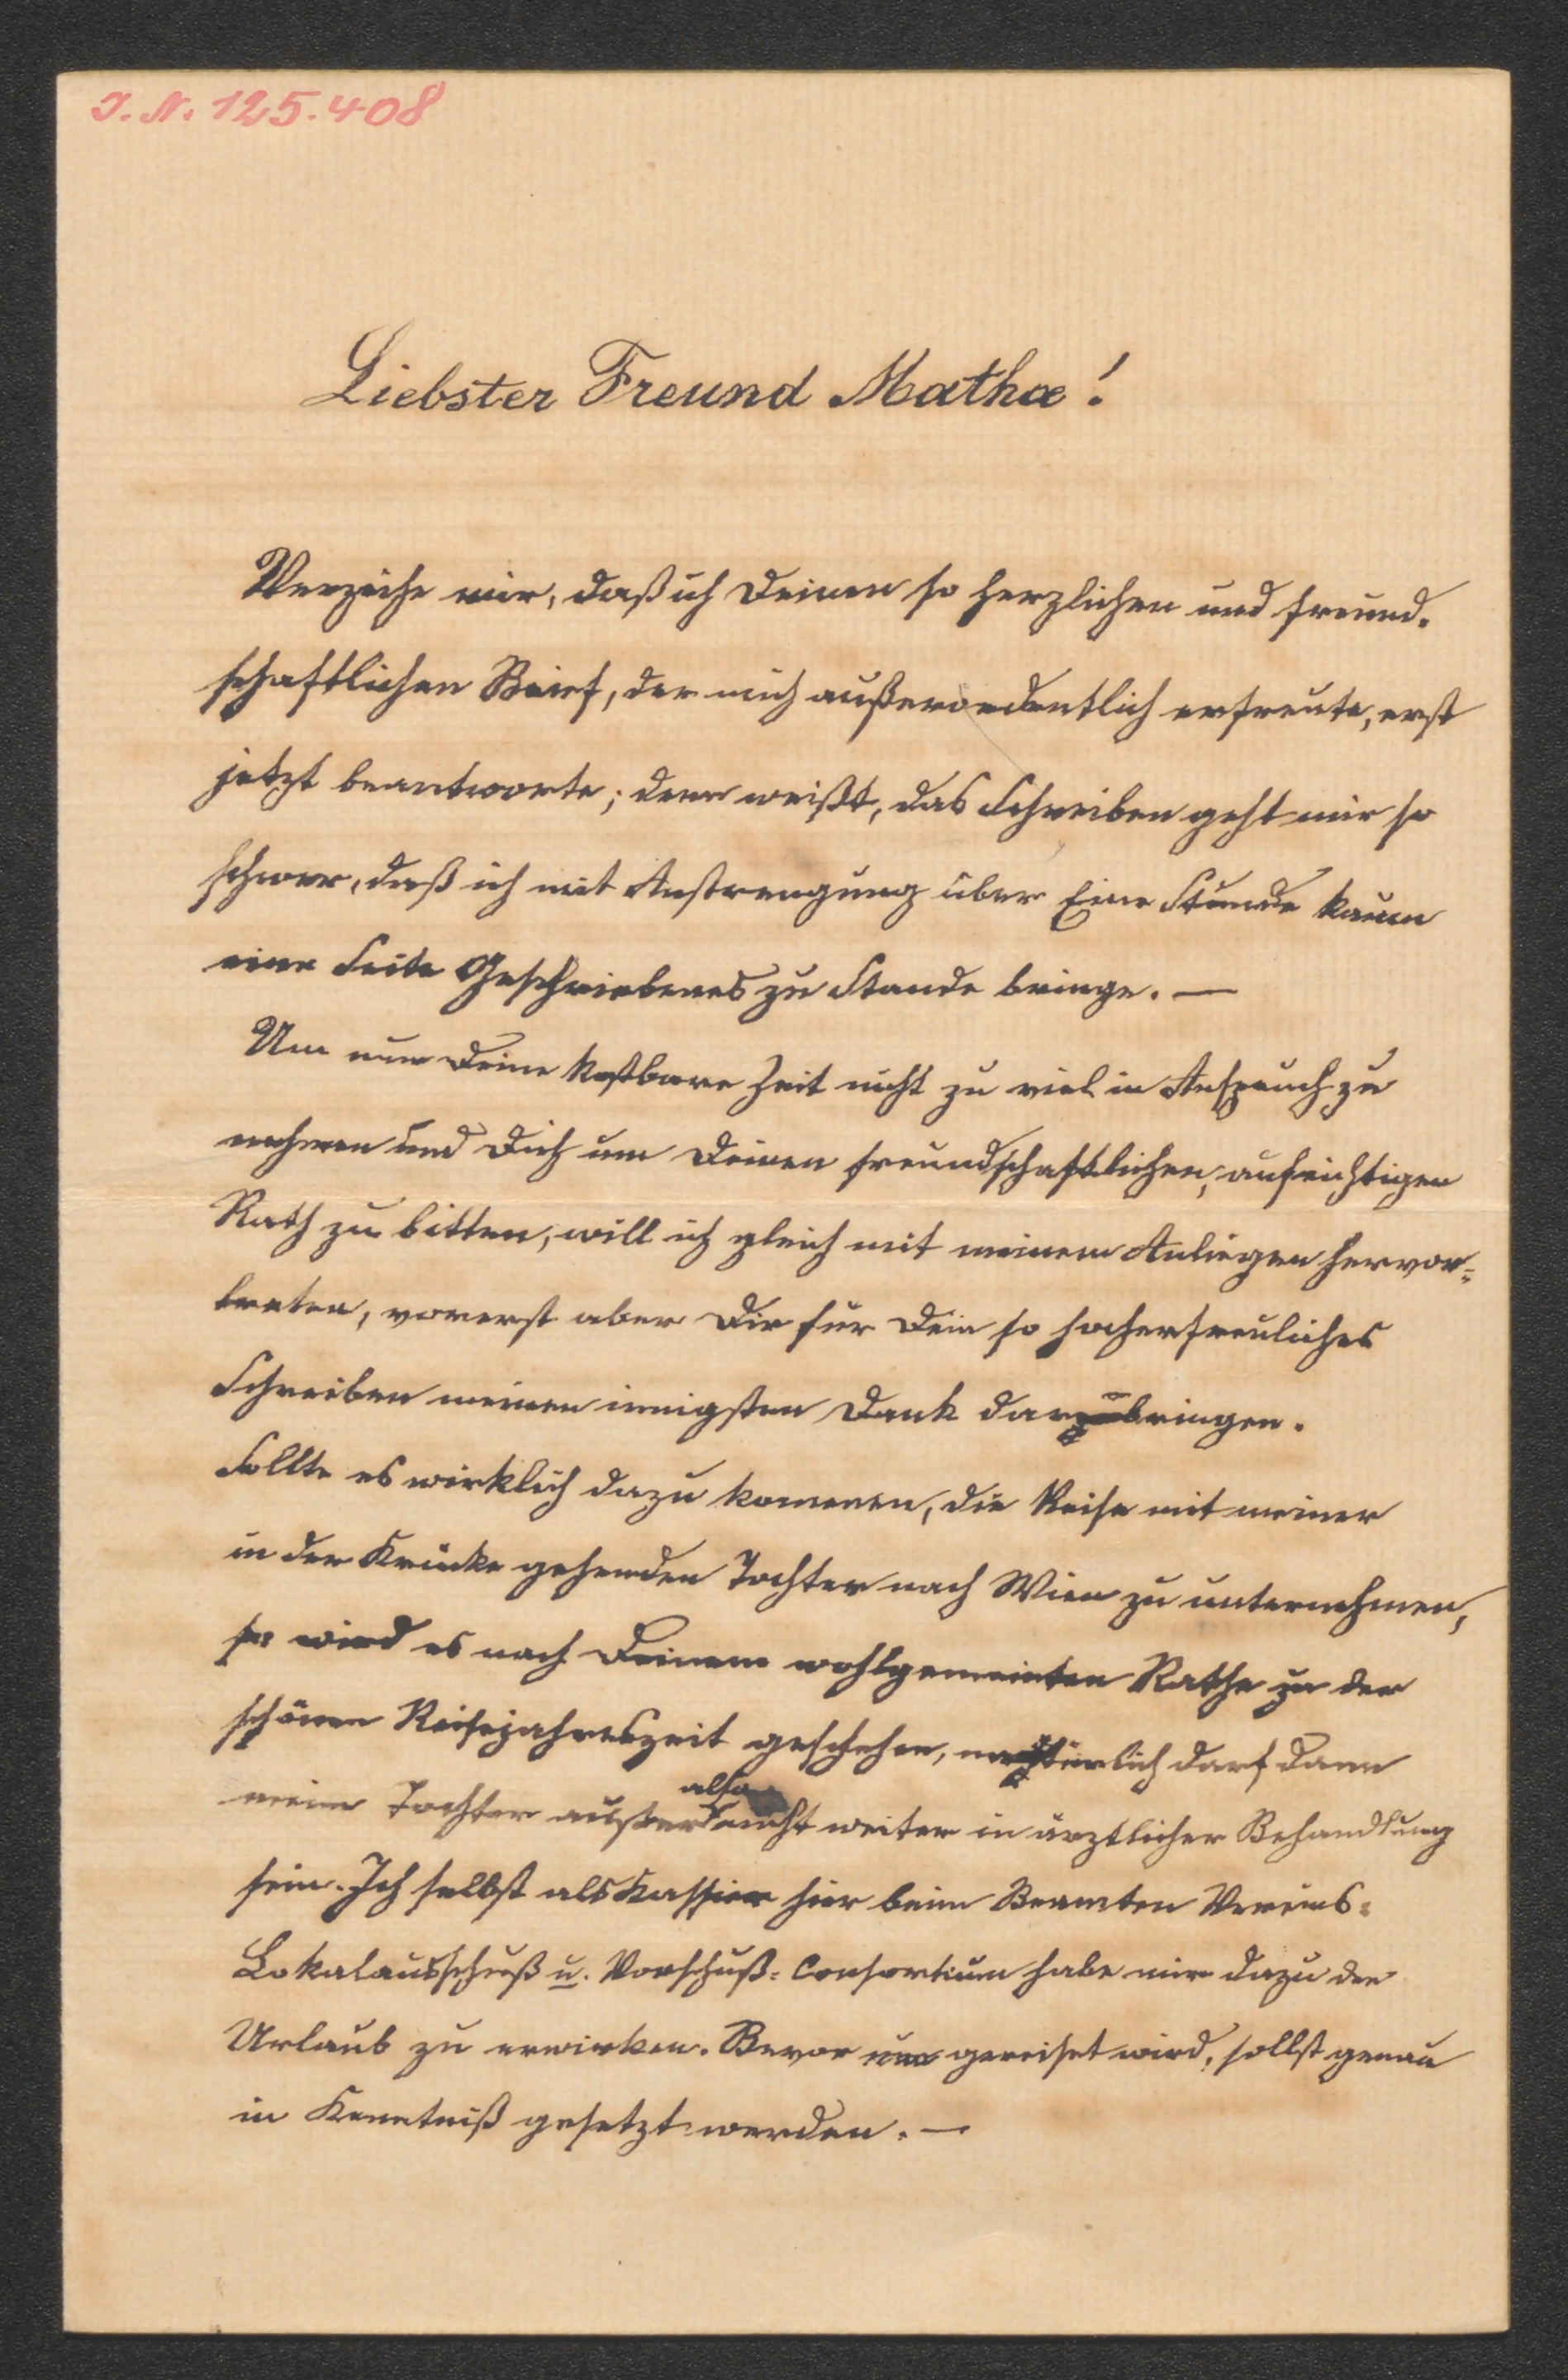 I. N. 125.408
Liebster Freund Matha!
Verzeihe mir, daß ich Deinen so herzlichen und freund-
schaftlichen Brief, der mich außerordentlich erfreute, erst
jetzt beantworte; denn weißt, das Schreiben geht mir so
schwer, daß ich mit Anstrengung über Eine Stunde kaum
eine Seite Geschriebenes zu Stande bringe. —
Um nun Deine kostbare Zeit nicht zu viel in Anspruch zu
nehmen und Dich um Deinen freundschaftlichen, aufrichtigen
Rath zu bitten, will ich gleich mit meinem Anliegen hervor-
treten, vorerst aber Dir für Dein so hocherfreuliches
Schreiben meinen innigsten Dank darzubringen.
Sollte es wirklich dazu kommen, die Reise mit meiner
in der Krücke gehenden Tochter nach Wien zu unternehmen,
so wird es nach Deinem wohlgemeinten Rathe zu der
schönen Reisejahreszeit geschehen, natürlich darf dann
also
meine Tochter nicht weiter in ärztlicher Behandlung
sein. Ich selbst als Kassier hier beim Beamten Vereins-
Lokalausschuß u. Vorschuß-Consortium habe mir dazu den
Urlaub zu erwirken. Bevor nun gereiset wird, sollst genau
in Kenntniß gesetzt werden. —